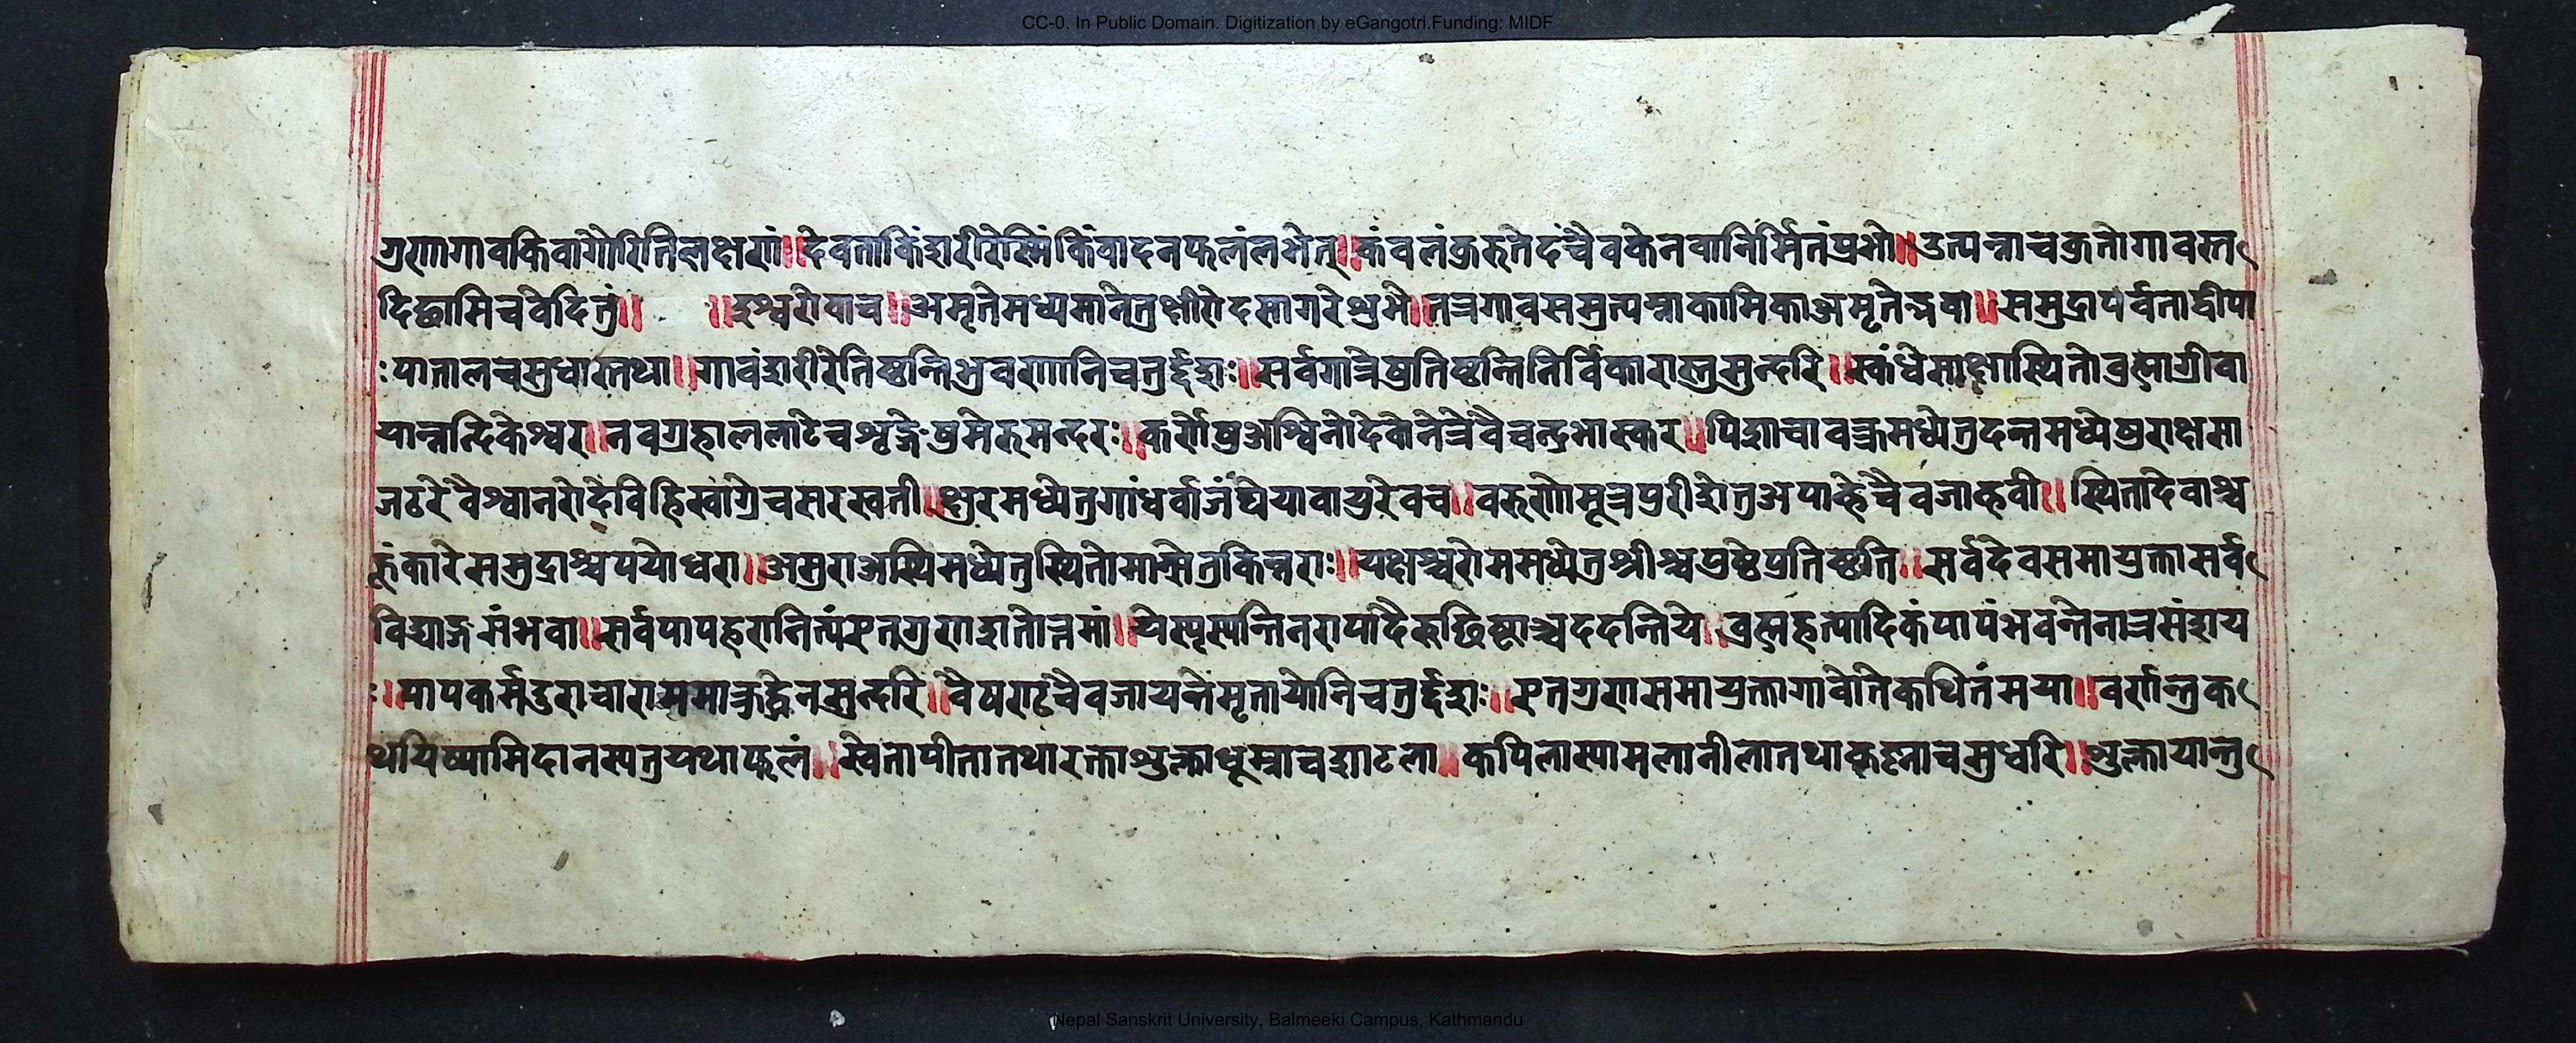 CC-0. In Public Domain. Digitization by eGangotri.Funding: MIDF
गुणागावकिवागौरितिलक्षणं॥देवताकिंशरीरेस्मिंकिंवादनफलंलभेत्॥कंवलंकुरुतेदंचैवकेनवानिर्मितंप्रभो॥उत्पन्नाचकुतोगावस्त
दिछामिचवेदितुं॥ ॥ईश्वरोवाच॥अमृतेमध्यमानेतुक्षीरोदसागरेशुभे॥तत्रगावसमुत्पन्नाकामिकाअमृतोद्भवा॥समुद्रापर्वताद्वीपा
ःपातालचसुधास्तथा॥गावंशरीरेतिष्ठन्तिभुवणानिचतुर्द्दशः॥सर्वगात्रेषुतिष्ठन्तिनिर्विकारास्तुसुन्दरि॥स्कंधेसाक्षास्थितोब्रह्माग्रीवा
यान्नन्दिकेश्वर॥नवग्रहाललाटेचशृङ्गेषुमेरुमन्दरः॥कर्णेषुअश्विनोदेवोनेत्रेवैचन्द्रभास्कर॥पिशाचावक्त्रमध्येतुदन्तमध्येषुराक्षसा
जठरेवैश्वानरोदेविजिह्वाग्रेचसरस्वती॥क्षुरमध्येतुगांधर्वाजंघेयावायुरेवच॥वरुणोमूत्रपुरीशेतुअपाह्नेचैवजाह्नवी॥स्थितादेवाश्च
हुंकारेसमुद्राश्चपयोधरा॥असुराअस्थिमध्येतुस्थितोमान्सेतुकिन्नराः॥यक्षाश्चरोममध्येतुश्रीश्चप्रष्ठेप्रतिष्ठति॥सर्वदेवसमायुक्तासर्व
विद्याङ्गसंभवा॥सर्वपापहरानित्यंएतगुणशतोत्तमां॥येस्पृस्यन्तिनरापादैरुछिष्टाञ्चददन्तिये॥ब्रह्महत्यादिकंपापंभवन्तेनात्रसंशय
ः॥पापकर्मदुराचारासुन्दरि॥चैवजायन्तेमृतायोनिचतुर्द्दशः॥एतगुणसमायुक्तागावेतिकथितंमया॥वर्णान्तुक
थयिष्यामिदानस्यतुयथाफलं॥स्वेतोपीतातथारक्ताशुक्लाधूम्राचशाटला॥कपिलास्यामलानीलातथाकृष्नाचसुधरि॥शुक्लायान्तु
Nepal Sanskrit University, Balmeeki Campus, Kathmandu